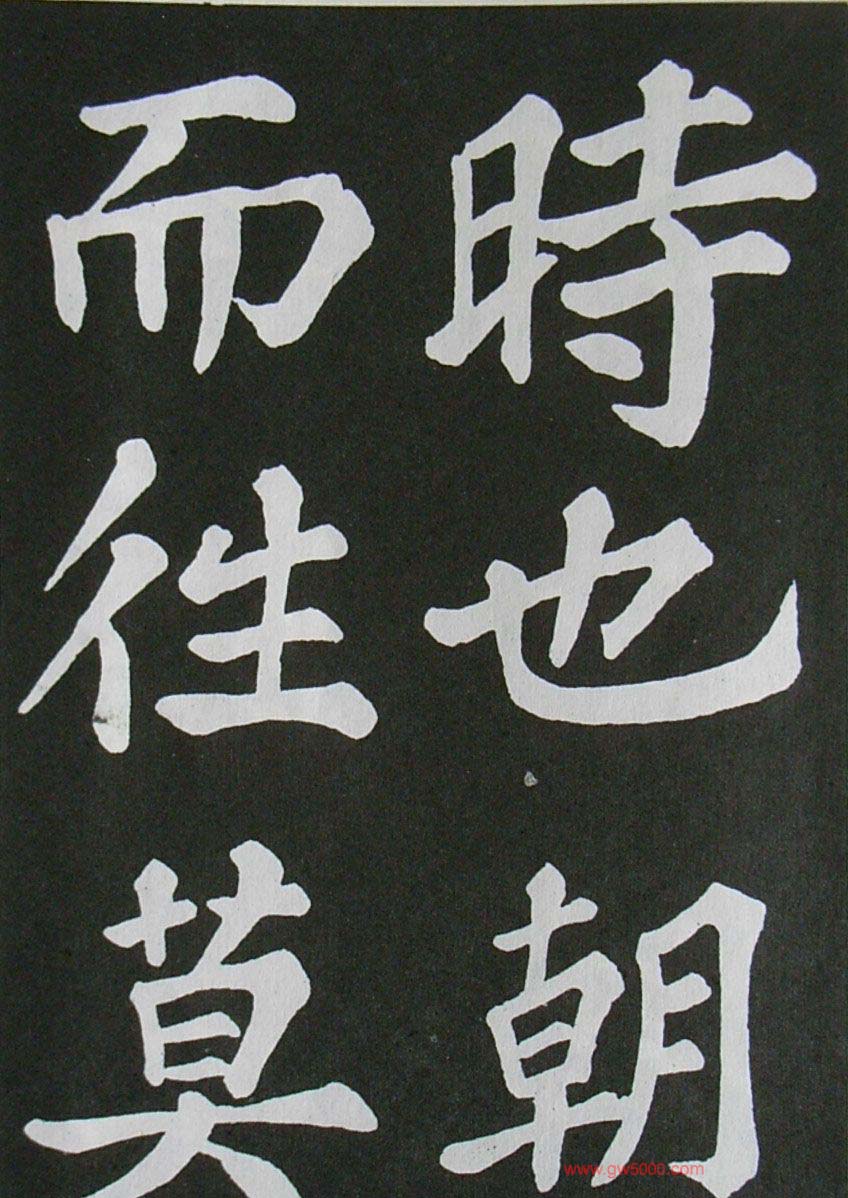 時也朝
而徃莫
www.gw5000.com